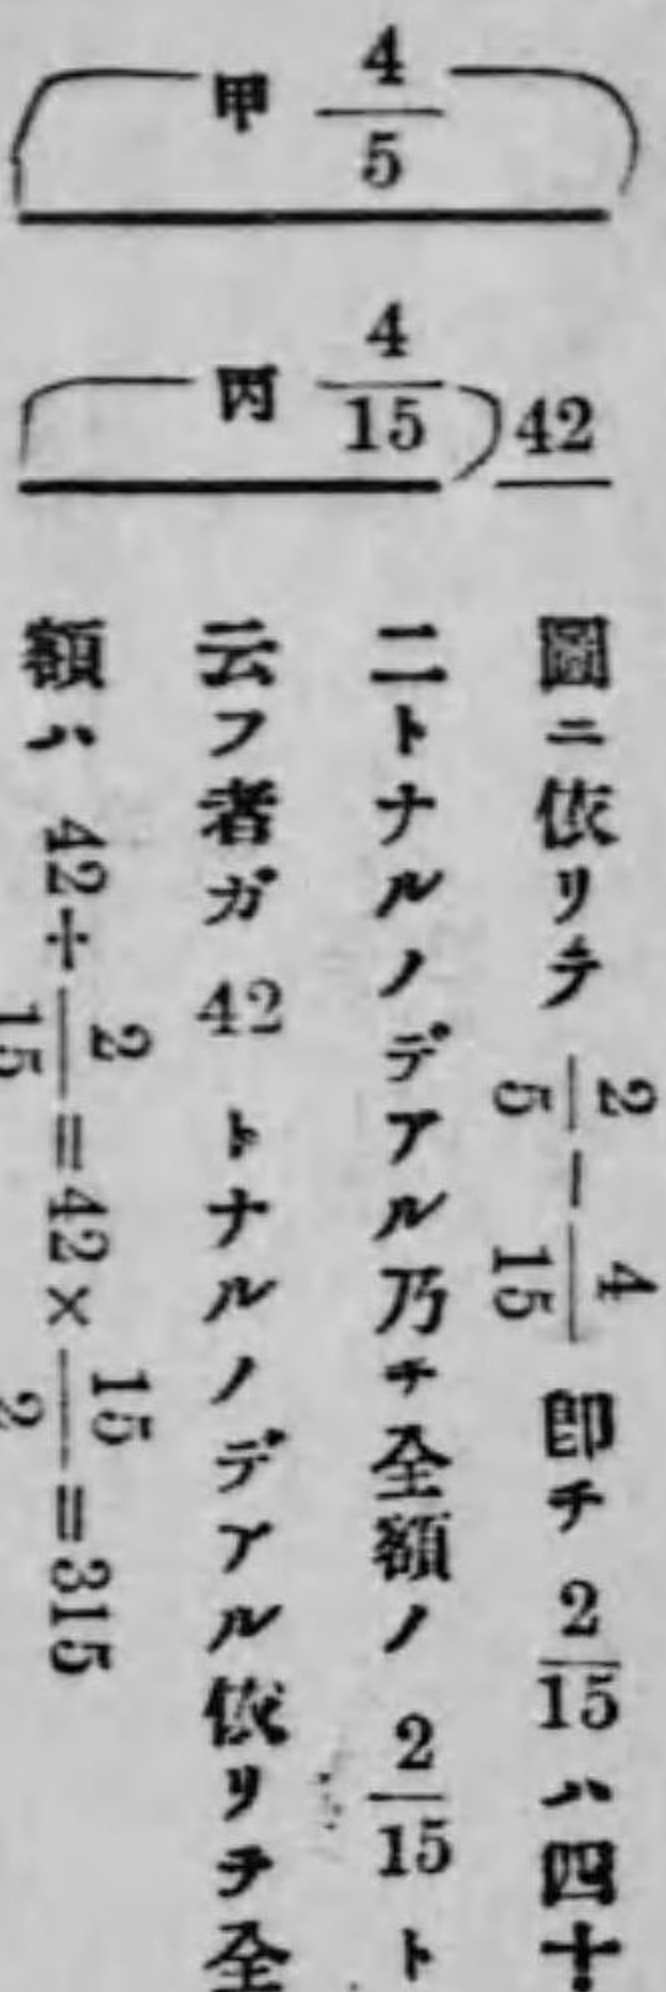 甲 4/5
丙 4/15 42
圖ニ依リテ 2/5 − 4/15 卽チ 2/15 ハ四十
二トナルノデアル乃チ全額ノ 2/15 ト
云フ者ガ 42 トナルノデアル依リテ全
額ハ 42÷2/15=42×15/2=315